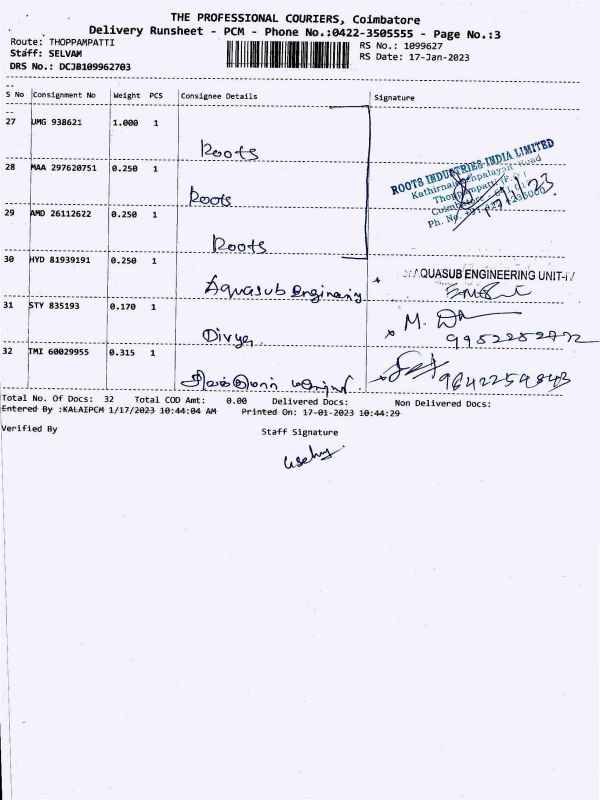 THE PROFESSIONAL COURIERS, Coimbatore
Delivery Runsheet - PCM - Phone No.:0422-3505555 - Page No.:3
Route: THOPPAMPATTI
RS No.: 1099627
Staff: SELVAM
RS Date: 17-Jan-2023
DRS No.: DCJB109962703
S No Consignment No Weight PCS Consignee Details Signature
27 UMG 938621 1.000 1
Roots
28 MAA 297620751 0.250 1
Roots
ROOTS INDUSTRIES INDIA LIMITED
29 AMD 26112622 0.250 1
Roots
30 HYD 81939191 0.250 1
Aquasub Engineering
AQUASUB ENGINEERING UNIT-IV
31 STY 835193 0.170 1
Divya
M.
9952252772
32 TMI 60029955 0.315 1
9842259843
Total No. Of Docs: 32 Total COD Amt: 0.00 Delivered Docs: Non Delivered Docs:
Entered By :KALAIPCM 1/17/2023 10:44:04 AM Printed On: 17-01-2023 10:44:29
Verified By Staff Signature